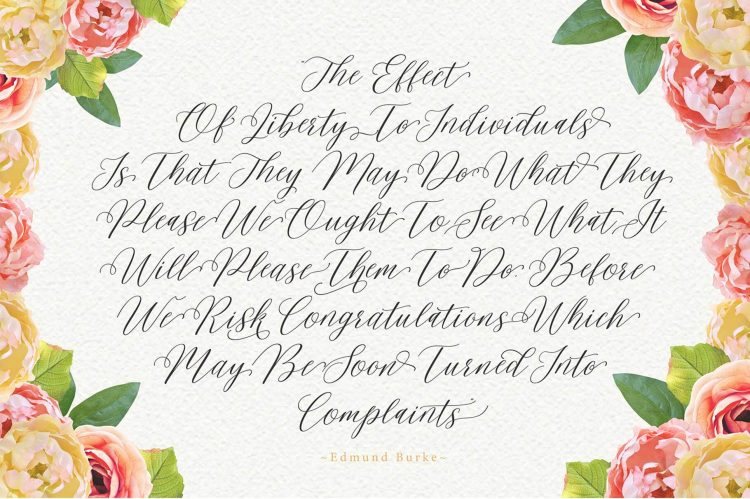 The Effect
Of Liberty To Individuals
Is That They May Do What They
Please We Ought To See What It
Will Please Them To Do. Before
We Risk Congratulations Which
May Be Soon Turned Into
Complaints
~Edmund Burke~